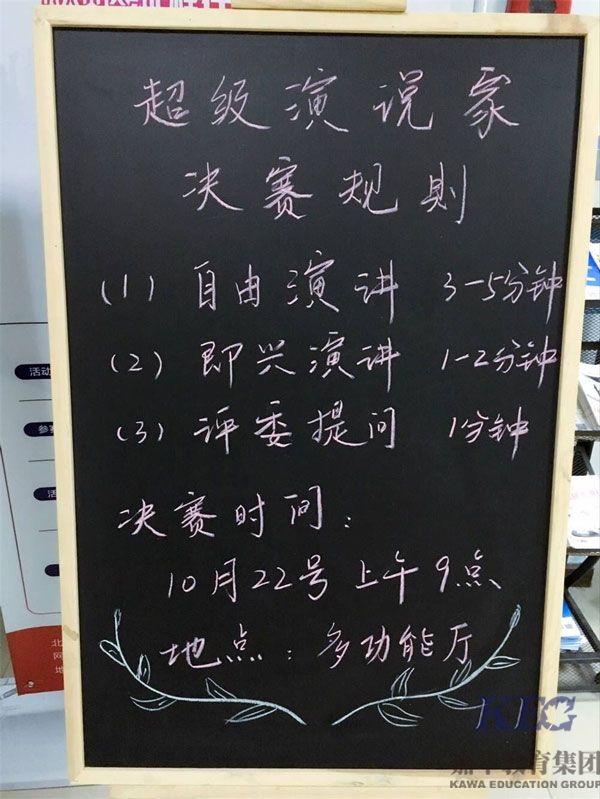 超级演说家
决赛规则
(1) 自由演讲 3-5分钟
(2) 即兴演讲 1-2分钟
(3) 评委提问 1分钟
决赛时间:
10月22号上午9点
地点:多功能厅
活动
参赛
活
北
网
地
KEG
嘉华教育集团
KAWA EDUCATION GROUP